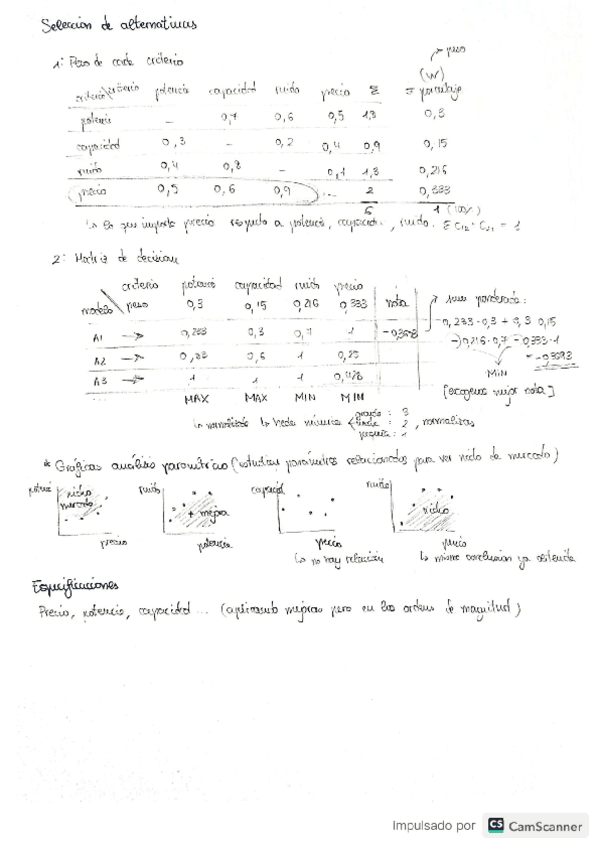 Selección de alternativas
1: Peso de cada criterio
peso
(W)
criterio criterio potencia capacidad ruido precio Σ = porcentaje
potencia — 0,7 0,6 0,5 1,3 0,3
capacidad 0,3 — 0,2 0,4 0,9 0,15
ruido 0,4 0,8 — 0,1 1,3 0,216
precio 0,5 0,6 0,9 ... 2 0,333
6 1 (100%)
↳ lo que importa precio respecto a potencia, capacidad, ruido.
2: Matriz de decisión
criterio potencia capacidad ruido precio
modelo peso 0,3 0,15 0,216 0,333 nota suma ponderada:
A1 → 0,233 0,3 0,7 1 -0,3593
0,233·0,3 + 0,3 0,15
-0,216·0,7 -0,333·1
= -0,3593
A2 → 0,83 0,6 1 0,25
MIN
A3 → 1 1 1 0,428
[escogemos mejor nota]
... MAX MAX MIN MIN
↳ normalizado ↳ hacer numérico
grande : 3
: 2 , normalizas
pequeña : 1
* Gráficas análisis paramétrico (estudian parámetros relacionados para ver nicho de mercado)
potencia nicho mercado precio
ruido + mejora potencia
capacidad precio
ruido nicho precio
↳ no hay relación
↳ misma conclusión ya obtenida
Especificaciones
Precio, potencia, capacidad ... (aplicando mejoras pero en los órdenes de magnitud)
Impulsado por CS CamScanner